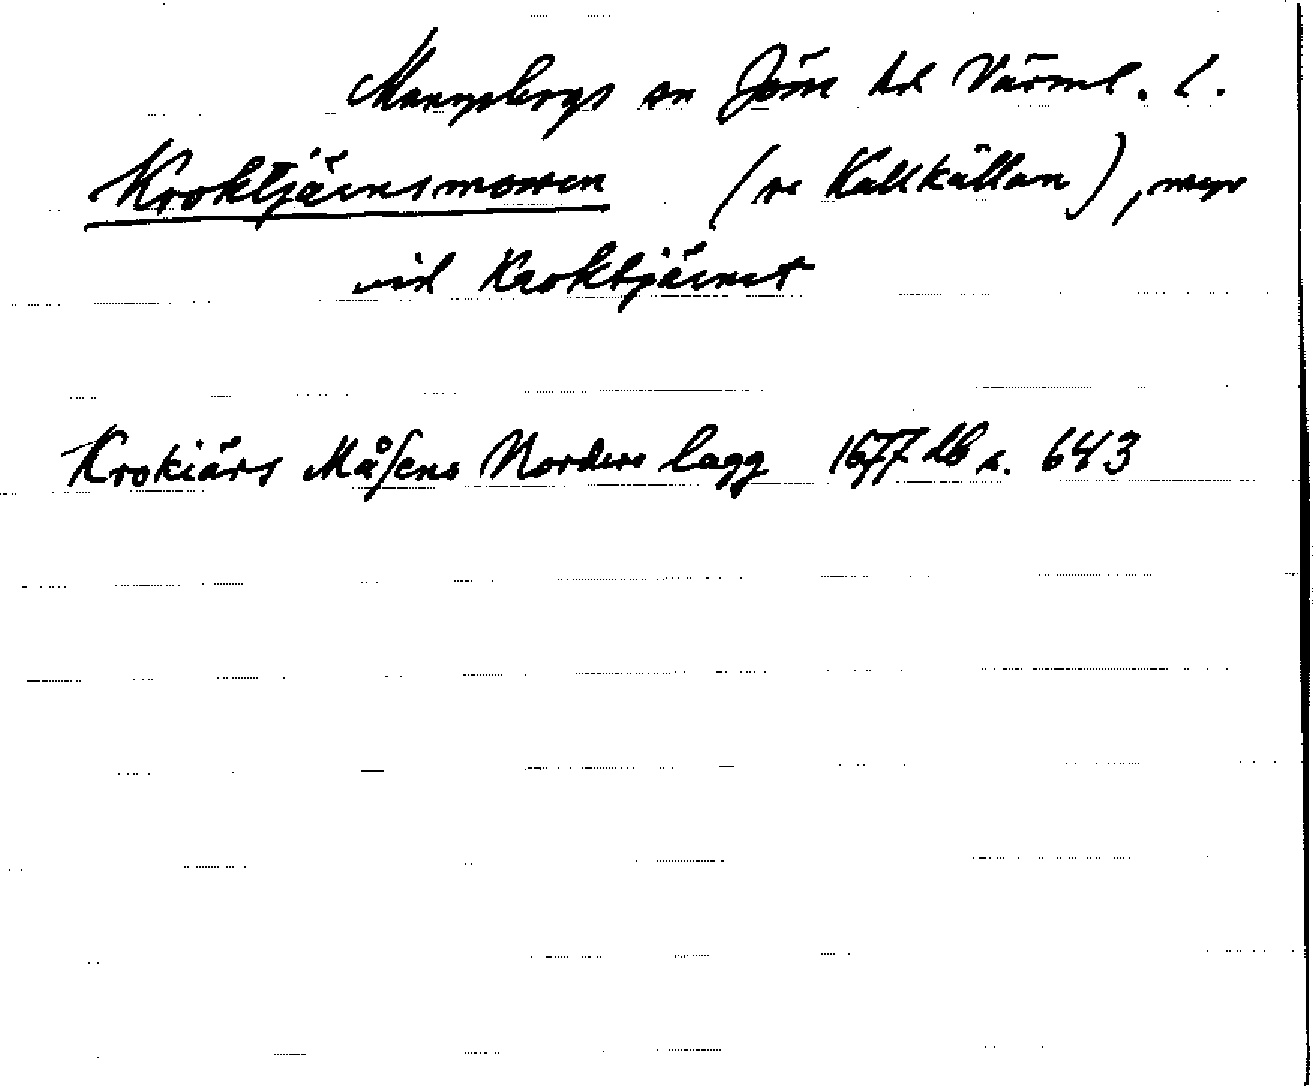 Mangsbergs sn Jösse hd Värml. l.
Kroktjärnsmossen (se Kallkällan), myr
vid Kroktjärnet
Krokiärs Måſens Nordere lagg 1677 db s. 643